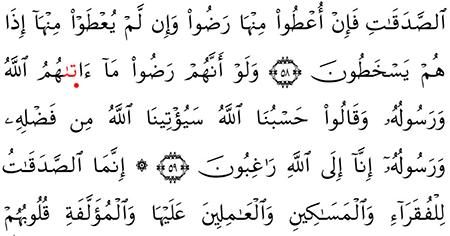 ٱلصَّدَقَـٰتِ فَإِنْ أُعْطُوا۟ مِنْهَا رَضُوا۟ وَإِن لَّمْ يُعْطَوْا۟ مِنْهَآ إِذَا
هُمْ يَسْخَطُونَ ﴿٥٨﴾ وَلَوْ أَنَّهُمْ رَضُوا۟ مَآ ءَاتَىٰهُمُ ٱللَّهُ
وَرَسُولُهُۥ وَقَالُوا۟ حَسْبُنَا ٱللَّهُ سَيُؤْتِينَا ٱللَّهُ مِن فَضْلِهِۦ
وَرَسُولُهُۥٓ إِنَّآ إِلَى ٱللَّهِ رَٰغِبُونَ ﴿٥٩﴾ ۞ إِنَّمَا ٱلصَّدَقَـٰتُ
لِلْفُقَرَآءِ وَٱلْمَسَـٰكِينِ وَٱلْعَـٰمِلِينَ عَلَيْهَا وَٱلْمُؤَلَّفَةِ قُلُوبُهُمْ